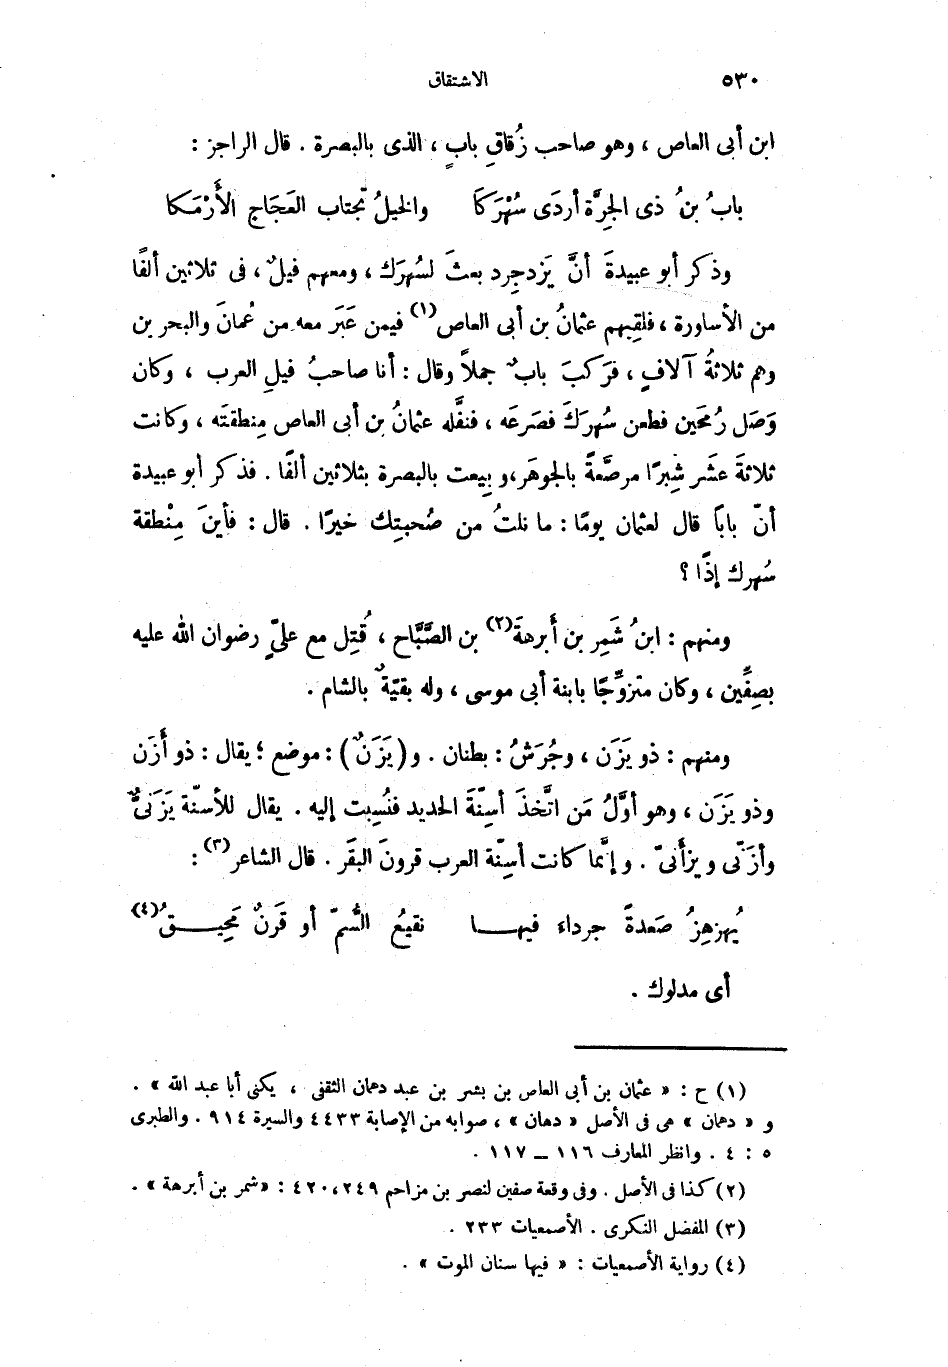 ٥٣٠ الاشتقاق
ابن أبى العاص ، وهو صاحب زُقاقِ بابٍ ، الذى بالبصرة . قال الراجز :
بابُ بنُ ذى الجِرَّة أردَى سُهْرَكَا والخيلُ تجتاب العَجَاج الأَرْمَكا
وذكر أبو عبيدةَ أنَّ يَزدجِرد بعثَ لسُهرَك ، ومعهم فيلٌ ، فى ثلاثين ألفًا
من الأساورة ، فلقِيهم عثمانُ بن أبى العاص(١) فيمن عَبَر معه من عُمانَ والبحرين
وهم ثلاثةُ آلافٍ ، فرَكبَ بابٌ جملاً وقال : أنا صاحبُ فيلِ العرب ، وكان
وَصَل رُمحَين فطعن سُهرَكَ فصَرعَه ، فنفَّله عثمانُ بن أبى العاص مِنطقتَه ، وكانت
ثلاثةَ عشَر شِبرًا مرصَّعةً بالجوهَر،و بِيعت بالبصرة بثلاثين ألفًا . فذكر أبو عبيدة
أنّ باباً قال لعثمان يومًا : ما نلتُ من صُحبتِك خيرًا . قال : فأينَ مِنْطقة
سُهرك إذًا ؟
ومنهم : ابنُ شَمِر بن أبرهةَ(٢) بن الصَّبَّاح ، قُتِل مع علىٍّ رضوان الله عليه
بصِفِّين ، وكان متزوِّجًا بابنة أبى موسى ، وله بقيّةٌ بالشام .
ومنهم : ذو يَزَن ، وجُرَشُ : بطنان . و(يَزَنٌ) : موضع ؛ يقال : ذو أزَن
وذو يَزَن ، وهو أوَّلُ مَن اتَّخذَ أسِنّةَ الحديد فنُسِبت إليه . يقال للأسنّة يَزَنىٌّ
وأزَنّى ويزأنىّ . وإنَّما كانت أسِنّة العرب قرونَ البقَر . قال الشاعر(٣) :
يُهزهِزُ صَعدةً جرداءَ فيهـا نقيعُ السُّمّ أو قَرنٌ مَحِيـقُ(٤)
أى مدلوك .
(١) ح : « عثمان بن أبى العاص بن بشر بن عبد دهمان الثقفى ، يكنى أبا عبد الله » .
و « دهمان » هى فى الأصل « دهان » ، صوابه من الإصابة ٤٤٣٣ والسيرة ٩١٤ . والطبرى
٥ : ٤ . وانظر المعارف ١١٦ – ١١٧ .
(٢) كذا فى الأصل . وفى وقعة صفين لنصر بن مزاحم ٢٤٩، ٤٢٠ : «شمر بن أبرهة » .
(٣) المفضل النكرى . الأصمعيات ٢٣٣ .
(٤) رواية الأصمعيات : « فيها سنان الموت » .